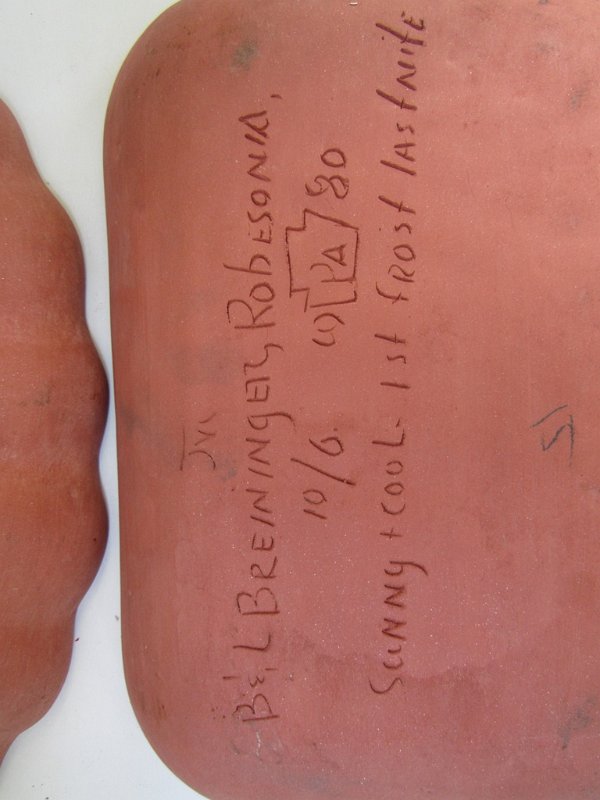 B & L BREININGER, RObESONIA,
10/6. PA /80
SUNNY + COOL. 1st fROST LAST NITE